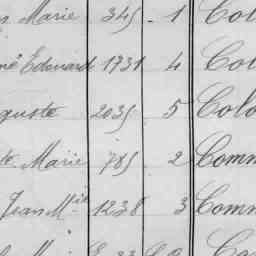 Marie 345 1 Col
Edouard 1731 4 Col
guste 2035 5 Colo
te Marie 785 2 Comm
Jean M.ie 1238 3 Comm